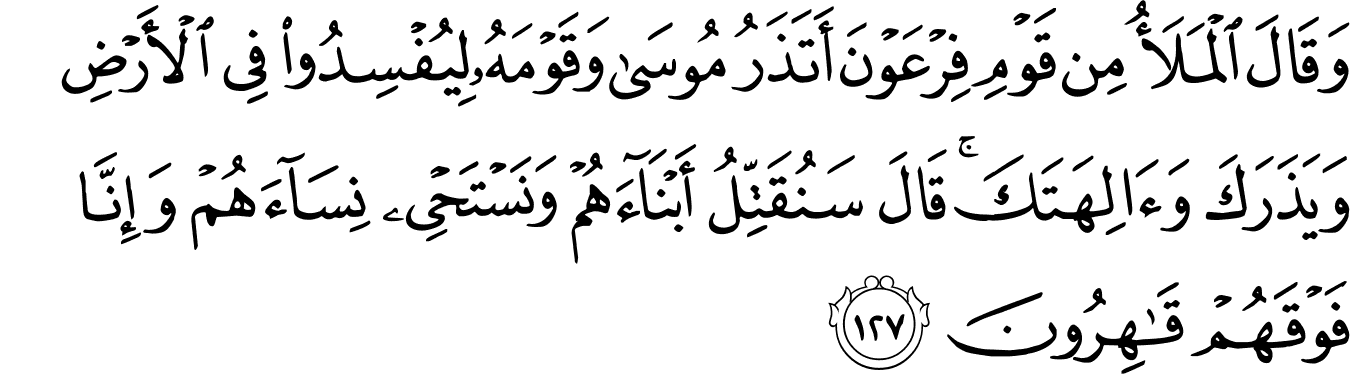 وَقَالَ ٱلْمَلَأُ مِن قَوْمِ فِرْعَوْنَ أَتَذَرُ مُوسَىٰ وَقَوْمَهُۥ لِيُفْسِدُوا۟ فِى ٱلْأَرْضِ
وَيَذَرَكَ وَءَالِهَتَكَ ۚ قَالَ سَنُقَتِّلُ أَبْنَآءَهُمْ وَنَسْتَحْىِۦ نِسَآءَهُمْ وَإِنَّا
فَوْقَهُمْ قَـٰهِرُونَ ١٢٧